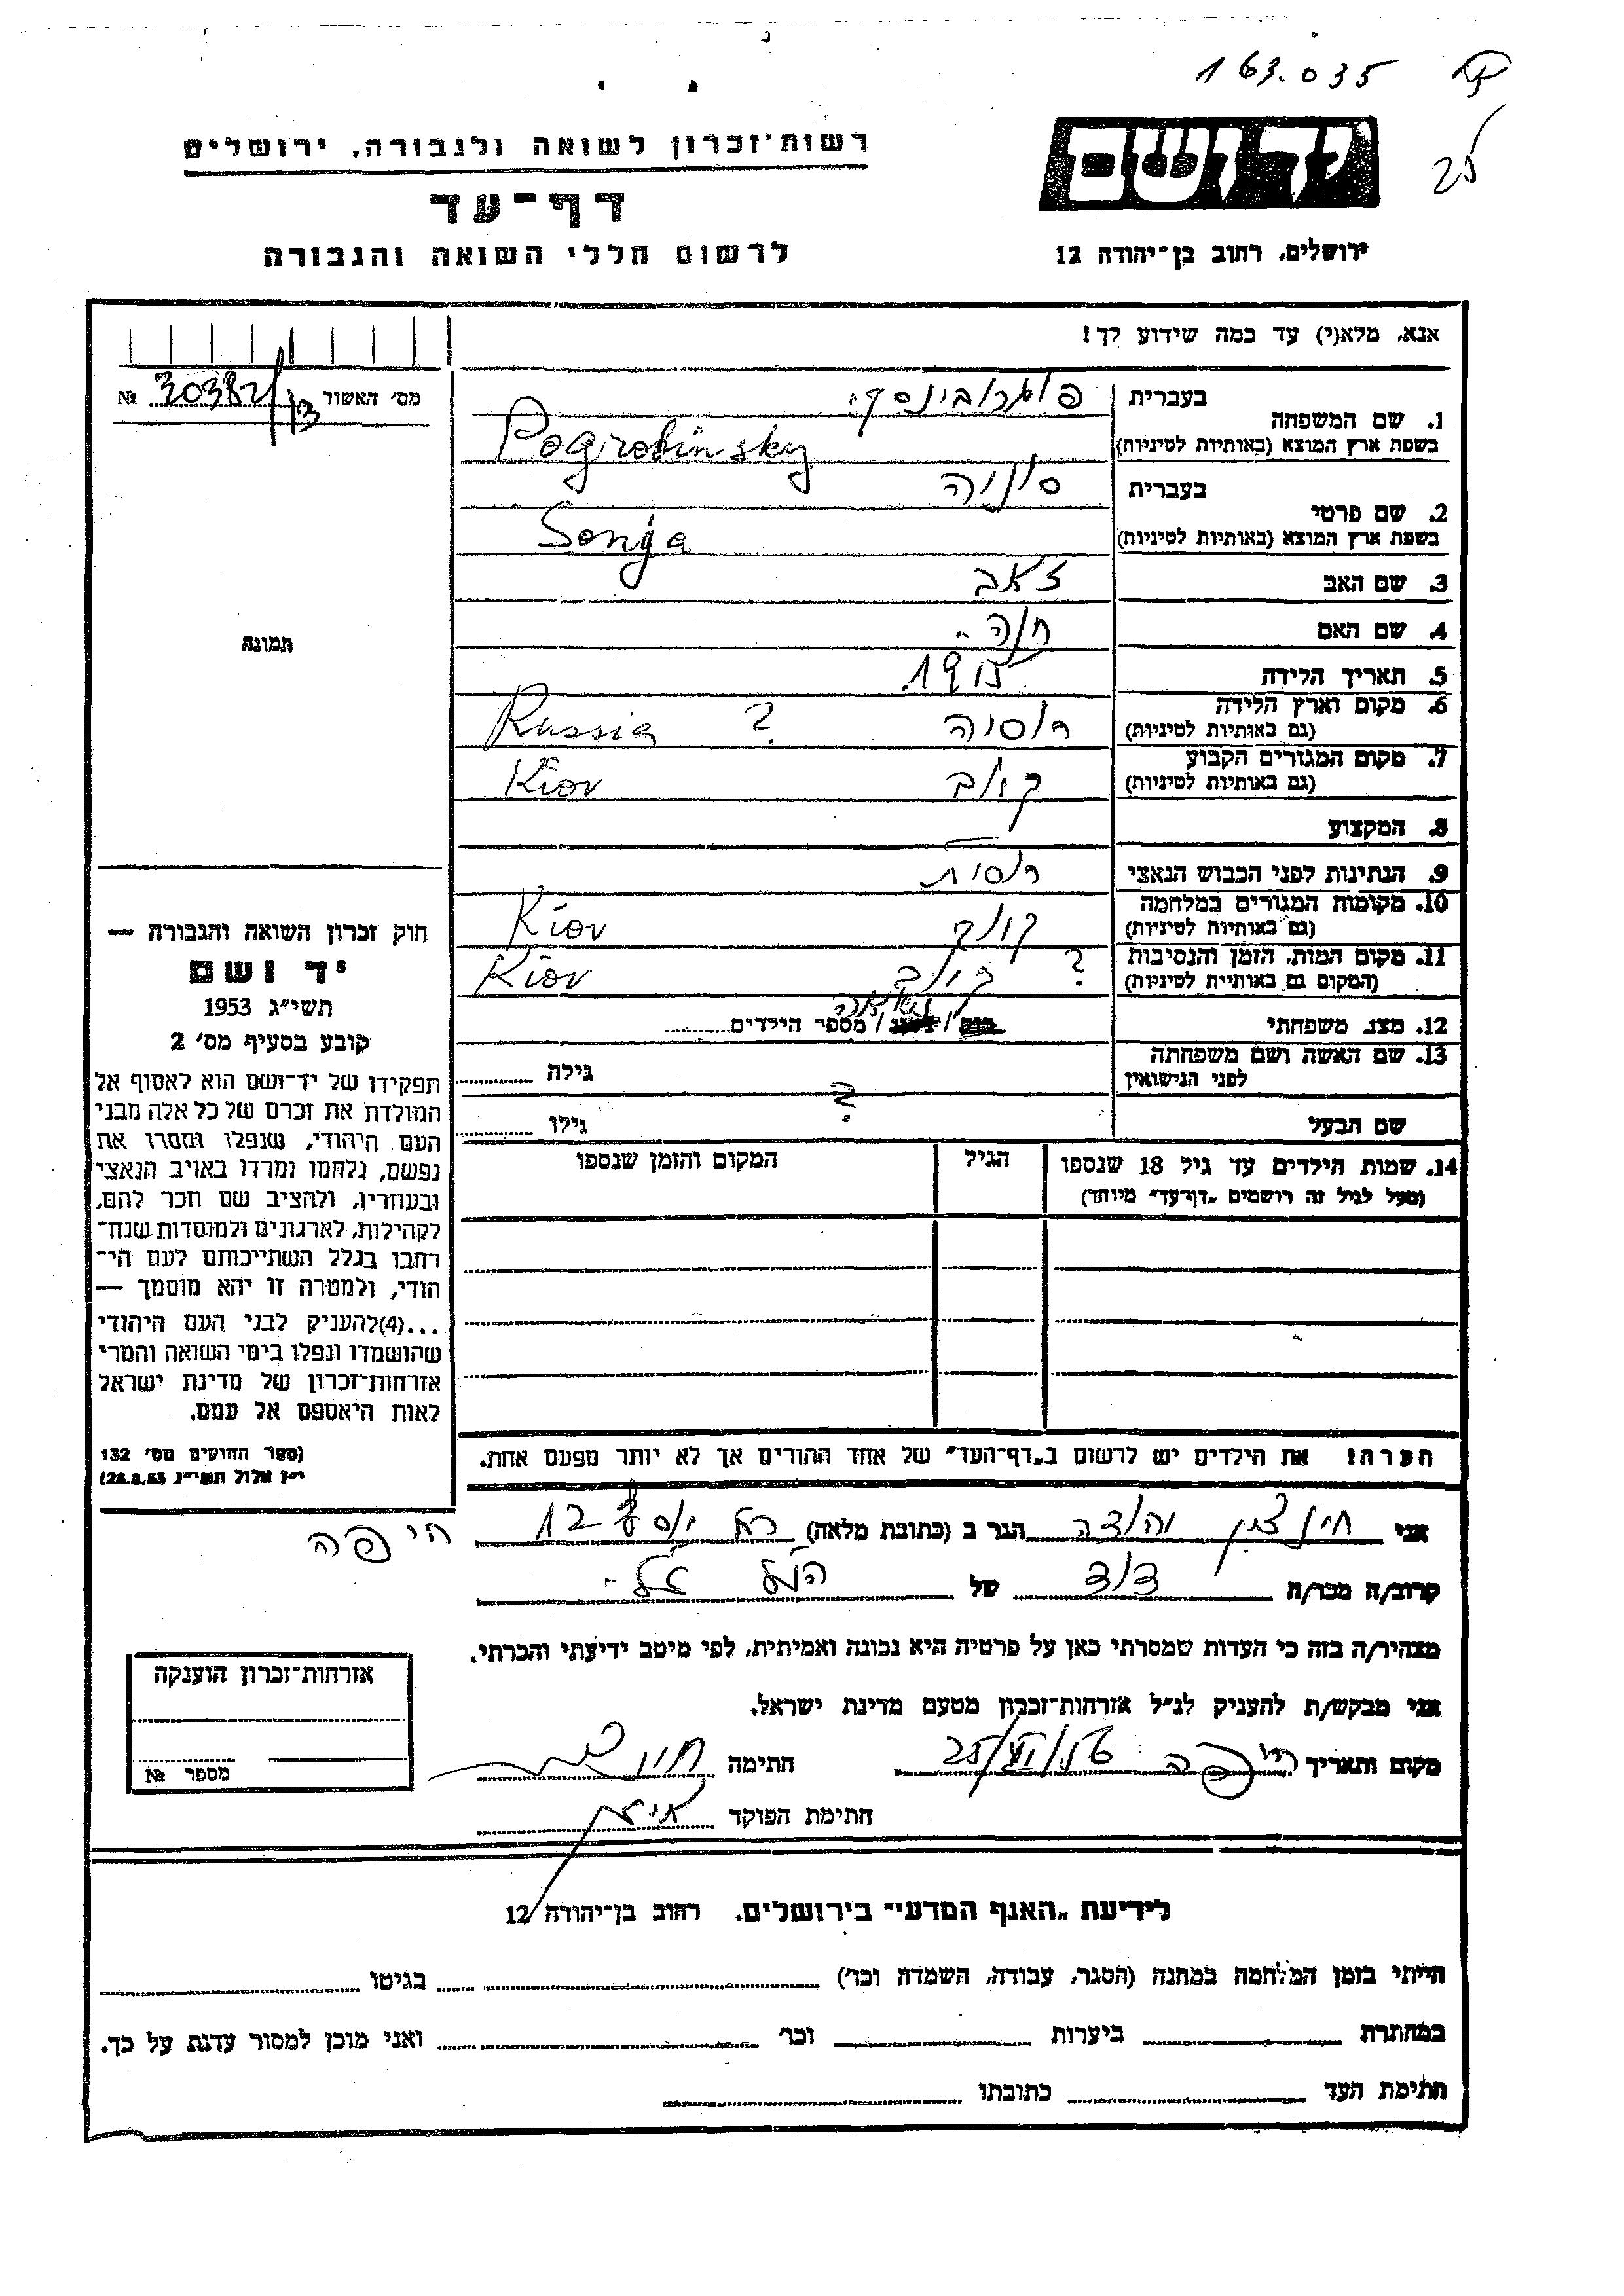 163.035
25
רשות־זכרון לשואה ולגבורה, ירושלים
יד ושם
דף־עד
לרשום חללי השואה והגבורה
ירושלים, רחוב בן־יהודה 12
אנא, מלא(י) עד כמה שידוע לך!
מס' האשור № 30382/13
1. שם המשפחה
בעברית פוגרובינסקי
בשפת ארץ המוצא (באותיות לטיניות) Pogrobinsky
2. שם פרטי
בעברית סוניה
בשפת ארץ המוצא (באותיות לטיניות) Sonja
3. שם האב זאב
4. שם האם חנה
תמונה
5. תאריך הלידה 1915
6. מקום וארץ הלידה
(גם באותיות לטיניות) רוסיה ? Russia
7. מקום המגורים הקבוע
(גם באותיות לטיניות) קיוב Kiov
8. המקצוע —
9. הנתינות לפני הכבוש הנאצי רוסית
10. מקומות המגורים במלחמה
(גם באותיות לטיניות) קיוב Kiov
11. מקום המות, הזמן והנסיבות
(המקום גם באותיות לטיניות) ? קיוב Kiov
12. מצב משפחתי נשואה / מספר הילדים
13. שם האשה ושם משפחתה
לפני הנישואין גילה
?
שם הבעל גילו
14. שמות הילדים עד גיל 18 שנספו הגיל המקום והזמן שנספו
(מעל לגיל זה רושמים „דף־עד" מיוחד)
חוק זכרון השואה והגבורה —
יד ושם
תשי"ג 1953
קובע בסעיף מס' 2
תפקידו של יד־ושם הוא לאסוף אל
המולדת את זכרם של כל אלה מבני
העם היהודי, שנפלו ומסרו את
נפשם, נלחמו ומרדו באויב הנאצי
ובעוזריו, ולהציב שם וזכר להם,
לקהילות, לארגונים ולמוסדות שנח־
רבו בגלל השתייכותם לעם הי־
הודי, ולמטרה זו יהא מוסמך —
...(4)להעניק לבני העם היהודי
שהושמדו ונפלו בימי השואה והמרי
אזרחות־זכרון של מדינת ישראל
לאות היאספם אל עמם.
(ספר החוקים מס' 132
י"ז אלול תשי"ג 28.8.53)
הערה! את הילדים יש לרשום ב„דף־העד" של אחד ההורים אך לא יותר מפעם אחת.
אני יהודה הגר ב (כתובת מלאה) 12 חיפה
קרוב/ה מכר/ה דוד של
מצהיר/ה בזה כי העדות שמסרתי כאן על פרטיה היא נכונה ואמיתית, לפי מיטב ידיעתי והכרתי.
אני מבקש/ת להעניק לנ"ל אזרחות־זכרון מטעם מדינת ישראל.
מקום ותאריך חיפה חתימה
חתימת הפוקד
אזרחות־זכרון הוענקה
מספר №
לידיעת „האגף המדעי" בירושלים, רחוב בן־יהודה 12
הייתי בזמן המלחמה במחנה (הסגר, עבודה, השמדה וכו') בגיטו
במחתרת ביערות וכו' ואני מוכן למסור עדות על כך.
חתימת העד כתובתו